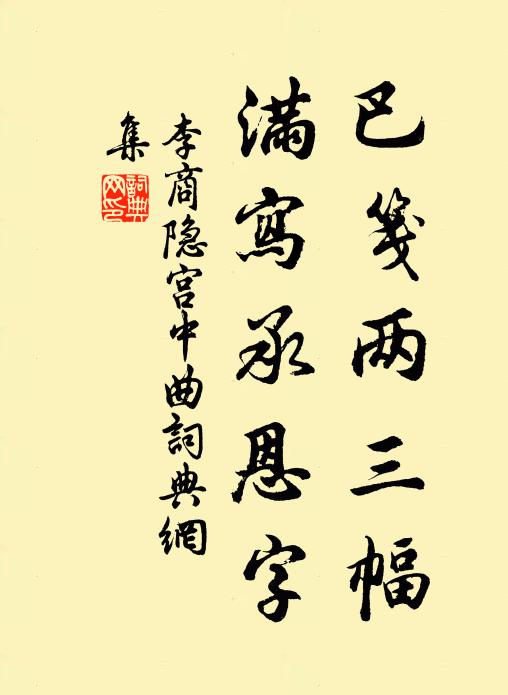 巴箋两三幅
滿寫承恩字
李商隐宫中曲詞典網
集
詞典网印